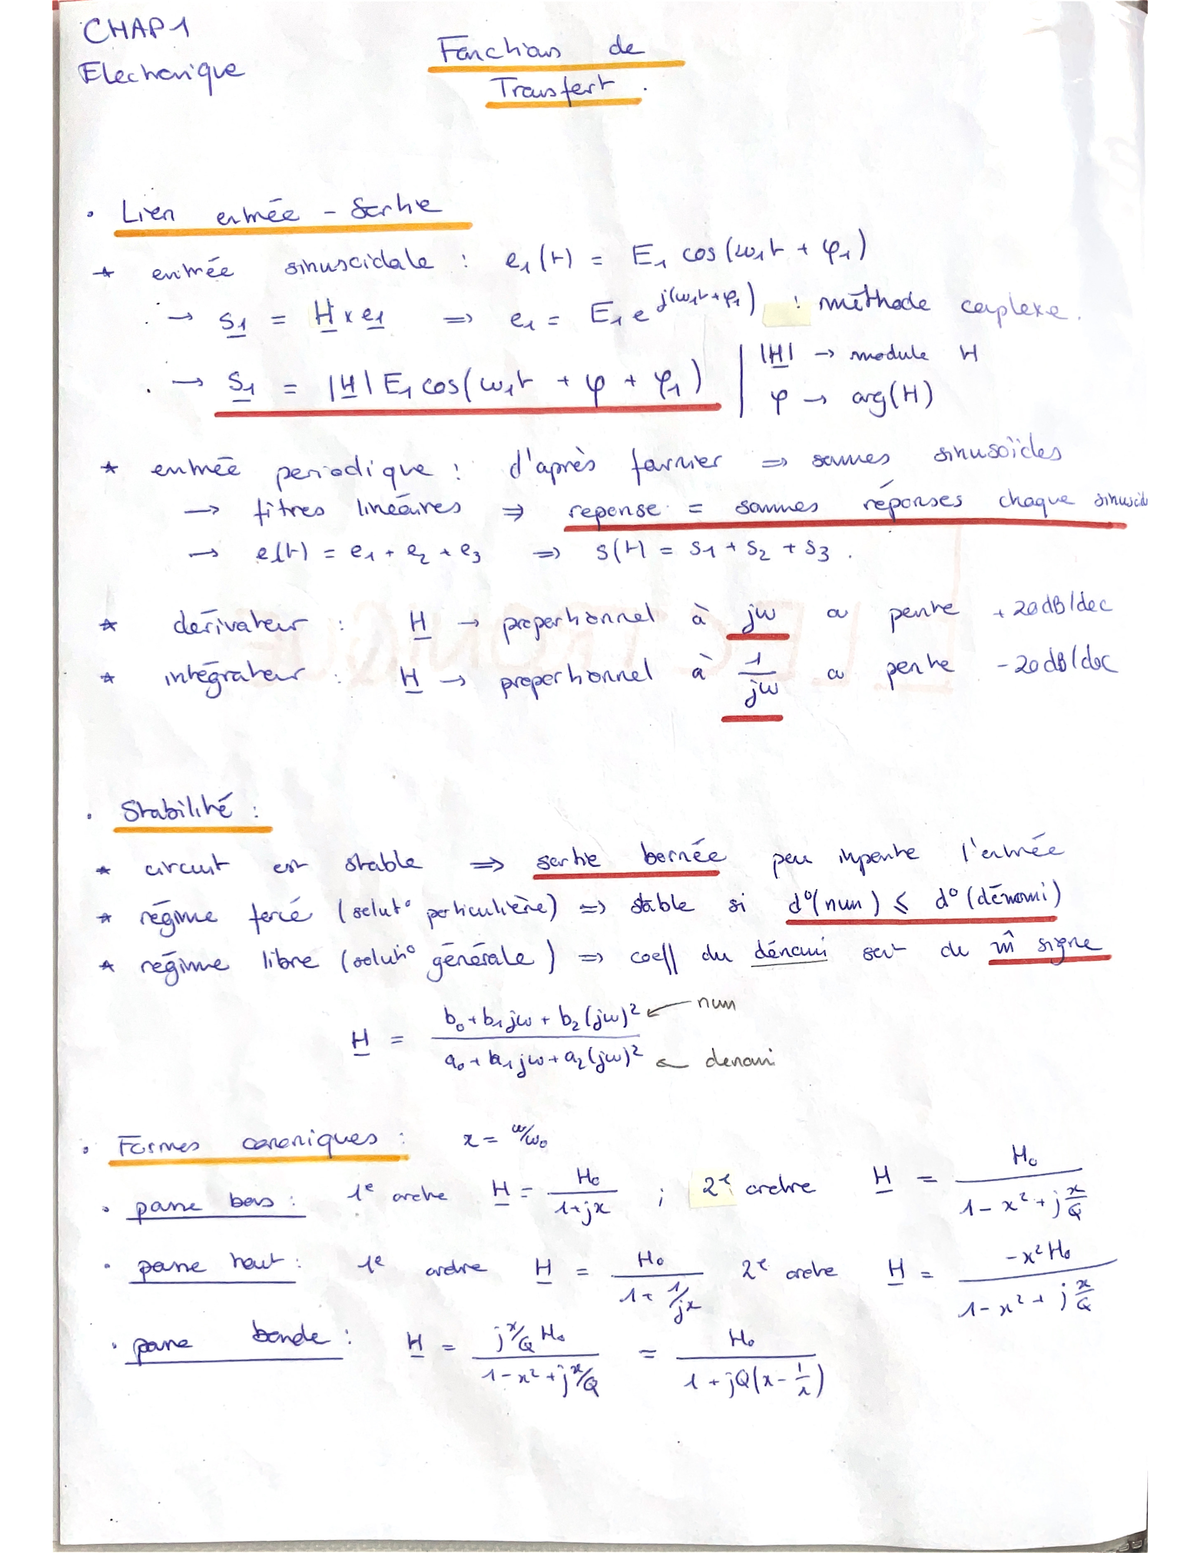 CHAP1
Electronique
Fonctions de
Transfert.
• Lien entrée - Sortie
* entrée sinusoidale : e₁(t) = E₁ cos(ω₁t + φ₁)
→ s₁ = H × e₁ ⇒ e₁ = E₁ e^j(ω₁t+φ₁) : méthode complexe.
→ s₁ = |H| E₁ cos(ω₁t + φ + φ₁) | |H| → module H
φ → arg(H)
* entrée periodique : d'après fourier ⇒ sommes sinusoïdes
→ filtres linéaires ⇒ reponse = sommes réponses chaque sinusoid
→ e(t) = e₁ + e₂ + e₃ ⇒ s(t) = s₁ + s₂ + s₃.
* dérivateur : H → proportionnel à jω ou pente + 20dB/dec
* intégrateur : H → proportionnel à 1/jω ou pente - 20dB/dec
• Stabilité :
* circuit est stable ⇒ sortie bornée peu importe l'entrée
* régime forcé (solut° particulière) ⇒ stable si d°(num) ≤ d°(dénomi)
* régime libre (solut° générale) ⇒ coeff du dénomi sont de m̂ signe
H = (b₀ + b₁jω + b₂(jω)²)/(a₀ + a₁jω + a₂(jω)²) ← num ← denomi
• Formes canoniques : x = ω/ω₀
• passe bas : 1e ordre H = H₀/(1+jx) ; 2e ordre H = H₀/(1 - x² + j x/Q)
• passe haut : 1e ordre H = H₀/(1 + 1/jx) 2e ordre H = -x² H₀/(1 - x² + j x/Q)
• passe bande : H = (j x/Q H₀)/(1 - x² + j x/Q) = H₀/(1 + jQ(x - 1/x))